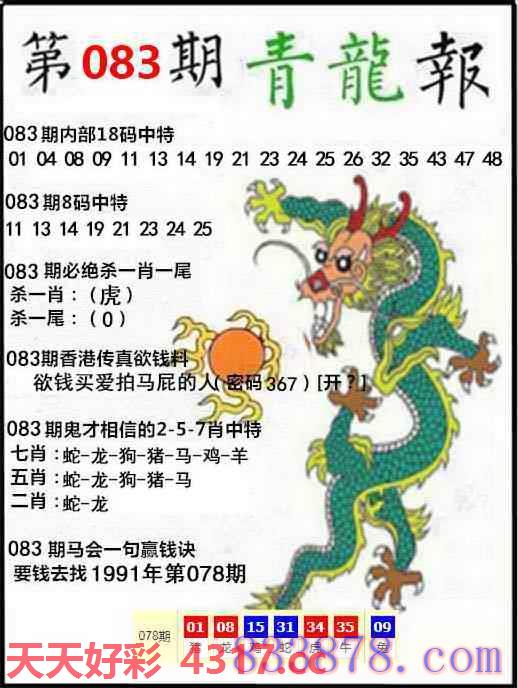 第083期 青龍報
083期内部18码中特
01 04 08 09 11 13 14 19 21 23 24 25 26 32 35 43 47 48
083期8码中特
11 13 14 19 21 23 24 25
083期必绝杀一肖一尾
杀一肖:(虎)
杀一尾:(0)
083期香港传真欲钱料
欲钱买爱拍马屁的人(密码367)[开?]
083期鬼才相信的2-5-7肖中特
七肖:蛇-龙-狗-猪-马-鸡-羊
五肖:蛇-龙-狗-猪-马
二肖:蛇-龙
083期马会一句赢钱诀
要钱去找1991年第078期
078期 01 08 15 31 34 35 09
龙 蛇 虎 牛 兔
天天好彩 4317.cc
878.com